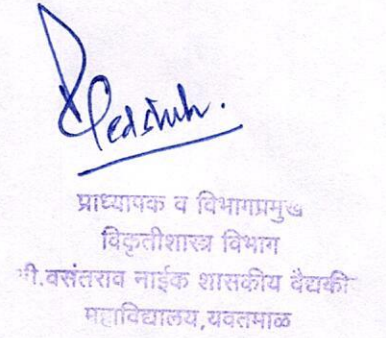 प्राध्यापक व विभागप्रमुख
विकृतीशास्त्र विभाग
श्री.वसंतराव नाईक शासकीय वैद्यकीय
महाविद्यालय,यवतमाळ